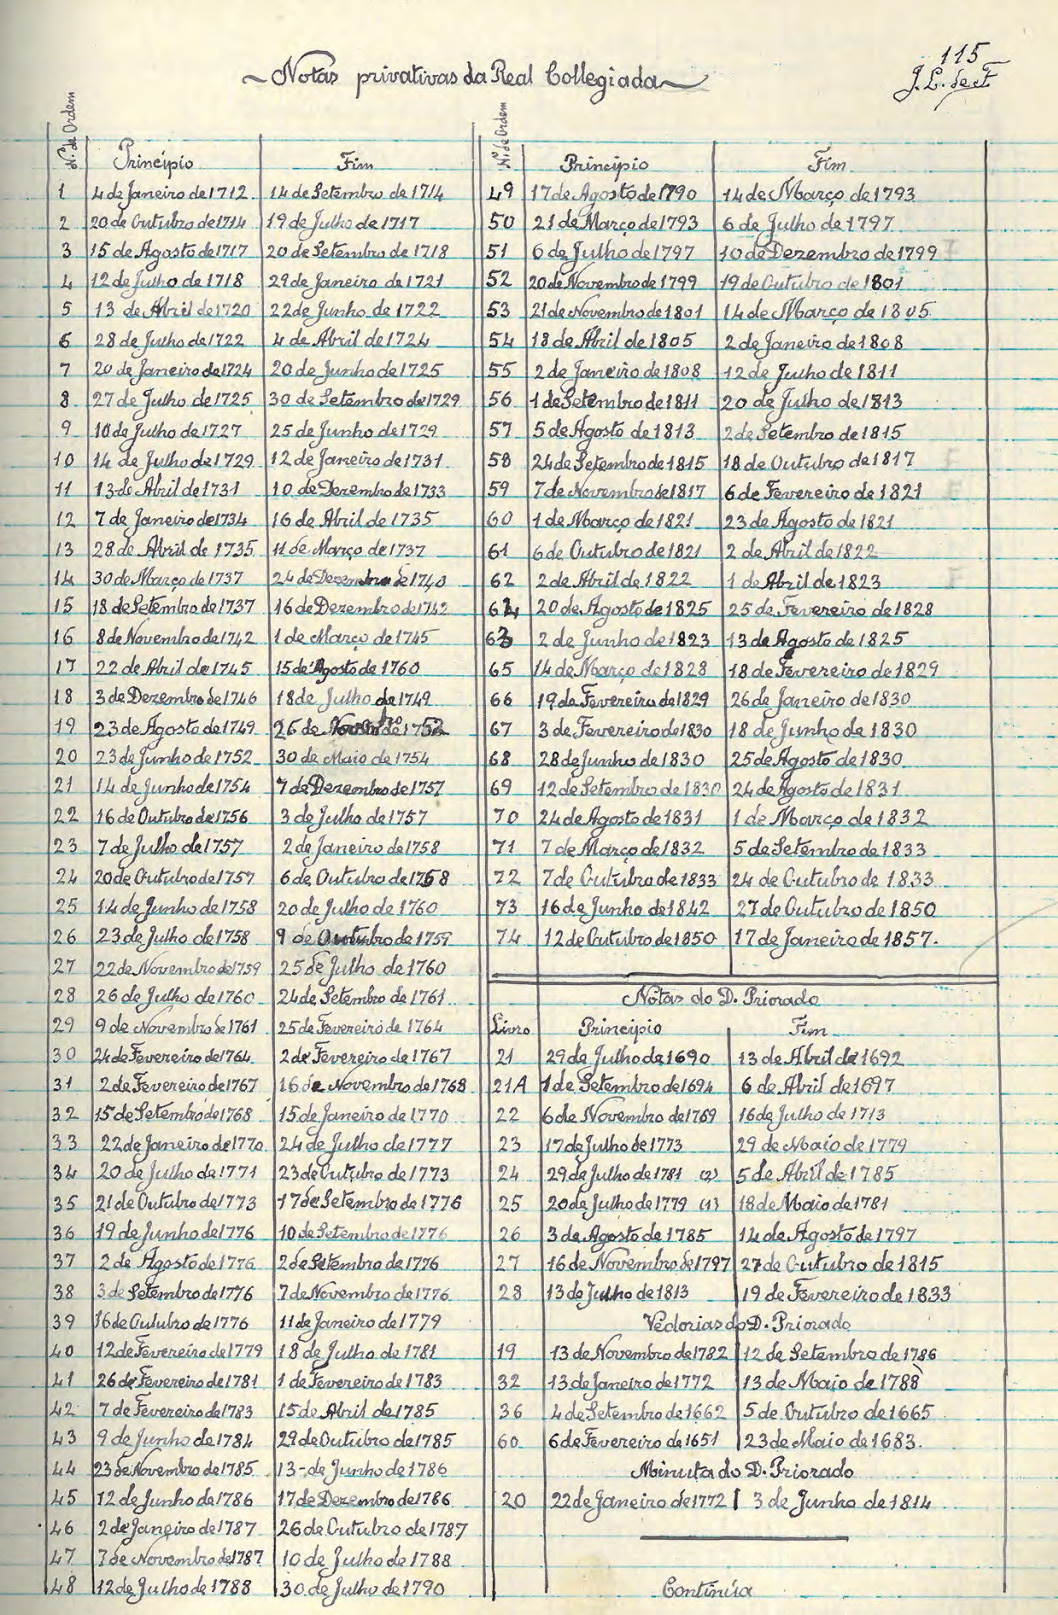 115
J. L. de F.
Notas privativas da Real Collegiada
Nº. de Ordem Princípio Fim
1 4 de Janeiro de 1712 14 de Setembro de 1714
2 20 de Outubro de 1714 19 de Julho de 1717
3 15 de Agosto de 1717 20 de Setembro de 1718
4 12 de Julho de 1718 29 de Janeiro de 1721
5 13 de Abril de 1720 22 de Junho de 1722
6 28 de Julho de 1722 4 de Abril de 1724
7 20 de Janeiro de 1724 20 de Junho de 1725
8 27 de Julho de 1725 30 de Setembro de 1729
9 10 de Julho de 1727 25 de Junho de 1729
10 14 de Julho de 1729 12 de Janeiro de 1731
11 13 de Abril de 1731 10 de Dezembro de 1733
12 7 de Janeiro de 1734 16 de Abril de 1735
13 28 de Abril de 1735 11 de Março de 1737
14 30 de Março de 1737 24 de Dezembro de 1740
15 18 de Setembro de 1737 16 de Dezembro de 1742
16 8 de Novembro de 1742 1 de Março de 1745
17 22 de Abril de 1745 15 de Agosto de 1760
18 3 de Dezembro de 1746 18 de Julho de 1749
19 23 de Agosto de 1749 26 de de 1752
20 23 de Junho de 1752 30 de Maio de 1754
21 14 de Junho de 1754 7 de Dezembro de 1757
22 16 de Outubro de 1756 3 de Julho de 1757
23 7 de Julho de 1757 2 de Janeiro de 1758
24 20 de Outubro de 1757 6 de Outubro de 1758
25 14 de Junho de 1758 20 de Julho de 1760
26 23 de Julho de 1758 9 de Outubro de 1759
27 22 de Novembro de 1759 25 de Julho de 1760
28 26 de Julho de 1760 24 de Setembro de 1761
29 9 de Novembro de 1761 25 de Fevereiro de 1764
30 24 de Fevereiro de 1764 2 de Fevereiro de 1767
31 2 de Fevereiro de 1767 16 de Novembro de 1768
32 15 de Setembro de 1768 15 de Janeiro de 1770
33 22 de Janeiro de 1770 24 de Julho de 1777
34 20 de Julho de 1771 23 de Outubro de 1773
35 21 de Outubro de 1773 17 de Setembro de 1776
36 19 de Junho de 1776 10 de Setembro de 1776
37 2 de Agosto de 1776 2 de Setembro de 1776
38 3 de Setembro de 1776 7 de Novembro de 1776
39 16 de Outubro de 1776 11 de Janeiro de 1779
40 12 de Fevereiro de 1779 18 de Julho de 1781
41 26 de Fevereiro de 1781 1 de Fevereiro de 1783
42 7 de Fevereiro de 1783 15 de Abril de 1785
43 9 de Junho de 1784 29 de Outubro de 1785
44 23 de Novembro de 1785 13 - de Junho de 1786
45 12 de Junho de 1786 17 de Dezembro de 1786
46 2 de Janeiro de 1787 26 de Outubro de 1787
47 7 de Novembro de 1787 10 de Julho de 1788
48 12 de Julho de 1788 30 de Julho de 1790
Nº. de Ordem Princípio Fim
49 17 de Agosto de 1790 14 de Março de 1793
50 21 de Março de 1793 6 de Julho de 1797
51 6 de Julho de 1797 10 de Dezembro de 1799
52 20 de Novembro de 1799 19 de Outubro de 1801
53 21 de Novembro de 1801 14 de Março de 1805
54 18 de Abril de 1805 2 de Janeiro de 1808
55 2 de Janeiro de 1808 12 de Julho de 1811
56 1 de Setembro de 1811 20 de Julho de 1813
57 5 de Agosto de 1813 2 de Setembro de 1815
58 24 de Setembro de 1815 18 de Outubro de 1817
59 7 de Novembro de 1817 6 de Fevereiro de 1821
60 1 de Março de 1821 23 de Agosto de 1821
61 6 de Outubro de 1821 2 de Abril de 1822
62 2 de Abril de 1822 1 de Abril de 1823
64 20 de Agosto de 1825 25 de Fevereiro de 1828
63 2 de Junho de 1823 13 de Agosto de 1825
65 14 de Março de 1828 18 de Fevereiro de 1829
66 19 de Fevereiro de 1829 26 de Janeiro de 1830
67 3 de Fevereiro de 1830 18 de Junho de 1830
68 28 de Junho de 1830 25 de Agosto de 1830
69 12 de Setembro de 1830 24 de Agosto de 1831
70 24 de Agosto de 1831 1 de Março de 1832
71 7 de Março de 1832 5 de Setembro de 1833
72 7 de Outubro de 1833 24 de Outubro de 1833
73 16 de Junho de 1842 27 de Outubro de 1850
74 12 de Outubro de 1850 17 de Janeiro de 1857.
Notas do D. Priorado
Livro Princípio Fim
21 29 de Julho de 1690 13 de Abril de 1692
21A 1 de Setembro de 1694 6 de Abril de 1697
22 6 de Novembro de 1769 16 de Julho de 1713
23 17 de Julho de 1773 29 de Maio de 1779
24 29 de Julho de 1781 (2) 5 de Abril de 1785
25 20 de Julho de 1779 (1) 18 de Maio de 1781
26 3 de Agosto de 1785 14 de Agosto de 1797
27 16 de Novembro de 1797 27 de Outubro de 1815
28 13 de Julho de 1813 19 de Fevereiro de 1833
Vedorias do D. Priorado
19 13 de Novembro de 1782 12 de Setembro de 1786
32 13 de Janeiro de 1772 13 de Maio de 1788
36 4 de Setembro de 1662 5 de Outubro de 1665
60 6 de Fevereiro de 1651 23 de Maio de 1683.
Minuta do D. Priorado
20 22 de Janeiro de 1772 3 de Junho de 1814
Continúa